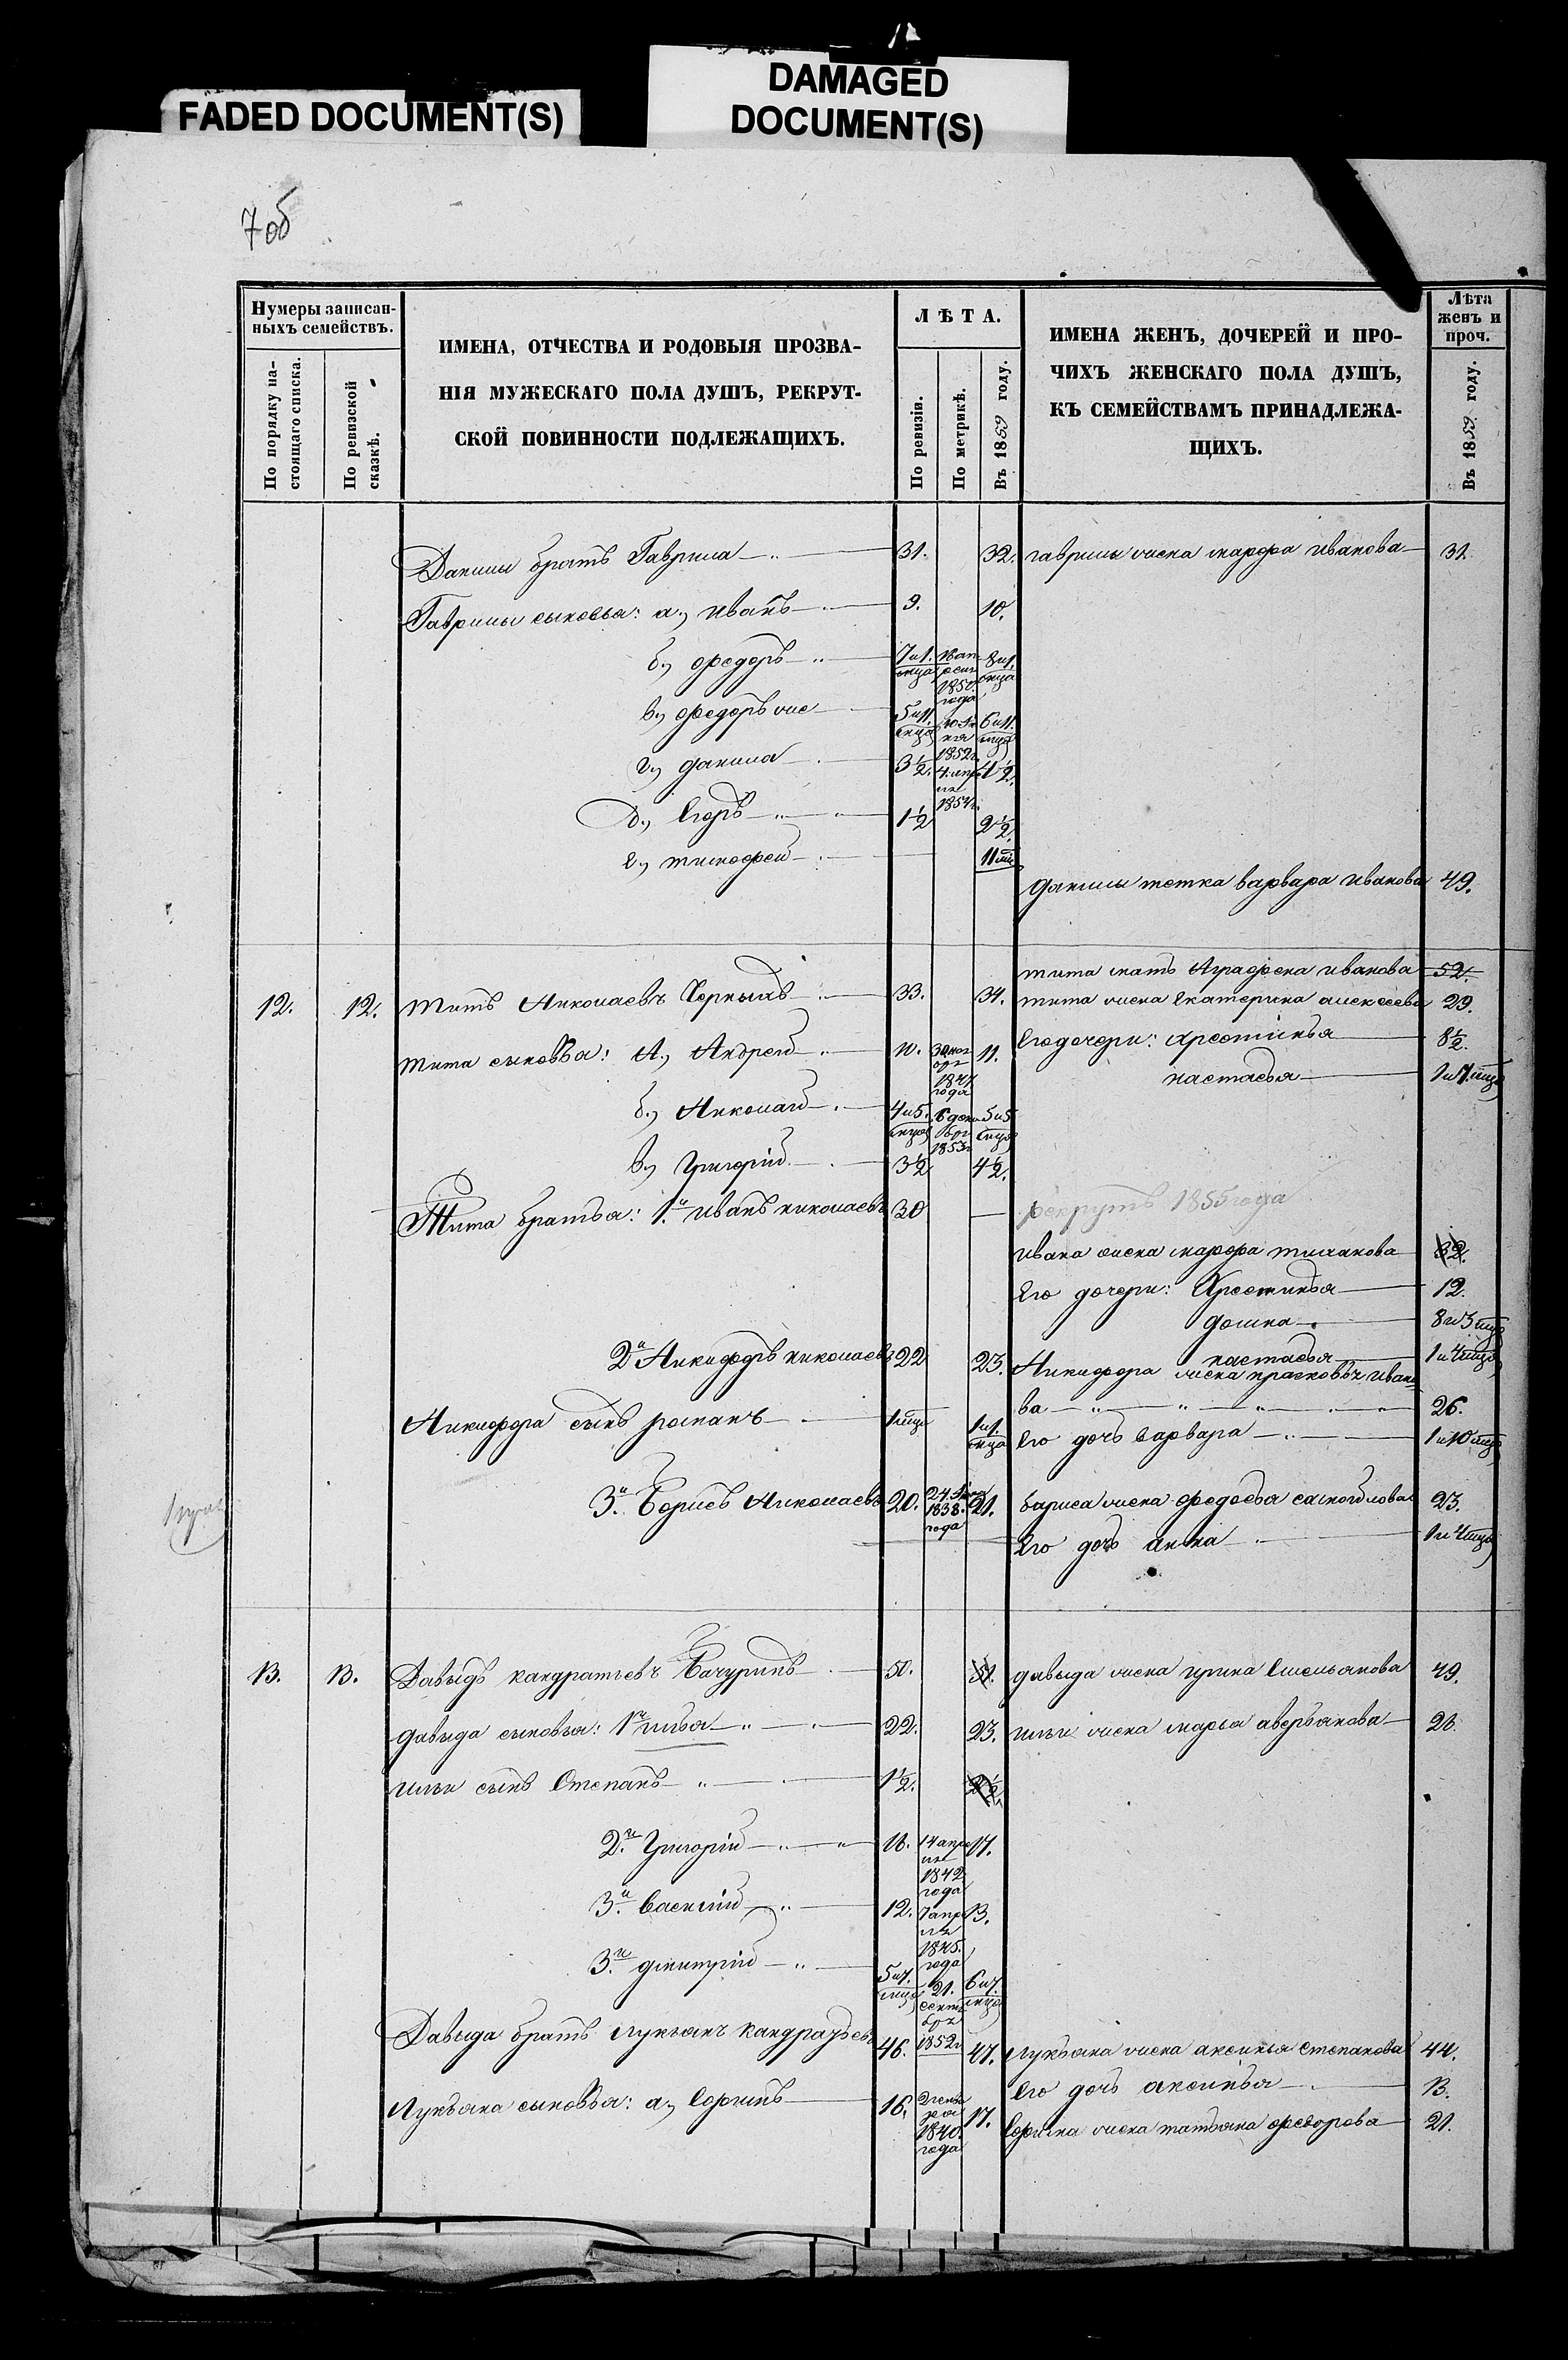 DAMAGED
DOCUMENT(S)
FADED DOCUMENT(S)
7 об
Нумеры записан-
ныхъ семействъ.
По порядку на-
стоящаго списка.
По ревизской
сказкѣ.
ИМЕНА, ОТЧЕСТВА И РОДОВЫЯ ПРОЗВА-
НІЯ МУЖЕСКАГО ПОЛА ДУШЪ, РЕКРУТ-
СКОЙ ПОВИННОСТИ ПОДЛЕЖАЩИХЪ.
ЛѢТА.
По ревизіи.
По метрикѣ.
Въ 1859 году.
ИМЕНА ЖЕНЪ, ДОЧЕРЕЙ И ПРО-
ЧИХЪ ЖЕНСКАГО ПОЛА ДУШЪ,
КЪ СЕМЕЙСТВАМЪ ПРИНАДЛЕЖА-
ЩИХЪ.
Лѣта
женъ и
проч.
Въ 1859 году.
Данилы братъ Гаврила 31. 32. гаврилы жена марфа иванова 31
Гаврилы сыновья: а., иванъ 9. 10.
б., федоръ 7 и 1. мца 1850. года 8 и 1. мца
в., федоръ же 5 и 11. мцо 1852 6 и 11. мцо
г., данила 3½. 1854 4½.
д., Егоръ 1½ 2½.
е., тимофей 11 мц
данилы тетка варвара иванова 49.
тита мать Аграфена иванова 52.
12. 12. титъ Николаевъ Черныхъ 33. 34. тита жена екатерина алексеева 29.
тита сыновья: А., Андрей 10. 1847 года 11. его дочери: хрестинья 8½.
настасья
б., Николай 4 и 5. мцо 6 дека бря 1853 5 и 5 мцо
в., Григорій 3½ 4½.
Тита братья: 1.й иванъ николаевъ 30 — рекрутъ 1855 года
ивана жена марфа 32.
его дочери: Хрестинья 12.
домна 8 и 3 мцо
настасья 1 и 4 мцо
2й Никифоръ николаевъ 22 23. Никифора жена прасковья ивано
ва 26.
Никифора сынъ романъ 1 мцо 1 и 1. мца его дочь варвара 1 и 10 мцо
3.й Борисъ Николаевъ 20. 24 1838. года 21. бариса жена федосья самойлова 23.
его дочь анна 1 и 4 мцо
13. 13. Давыдъ кандратьевъ Бачуринъ 50. 51. давыда жена ирина Емельянова 49.
давыда сыновья: 1й илья 22. 23. ильи жена марья аверьянова
ильи сынъ Степанъ 1½. 2½.
2.й Григорій 16. 14 апре ля 1842 года 17.
3.й Василій 12. 7 апре ля 1845. года 13.
3.й димитрій 5 и 7. мцо 21. сентя бря 1852 6 и 7. мцо
Давыда братъ лукьянъ кандратьевъ 46. 47. Лукьяна жена аксинья степанова 44.
его дочь аксинья 13.
Лукьяна сыновья: а., Ефимъ 16. 1840. года 17. Ефима жена татьяна федорова 21.